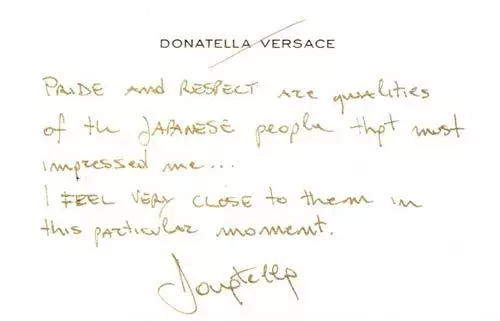 DONATELLA VERSACE
PRIDE and RESPECT are qualities
of the JAPANESE people that most
impressed me...
I FEEL VERY CLOSE to them in
this particular moment.
Donatella